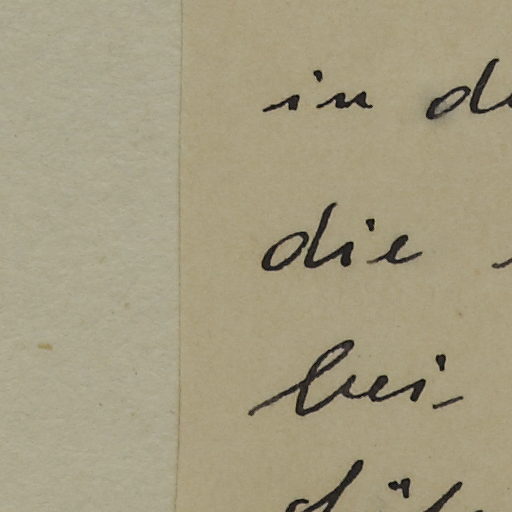 in d
die
bei-